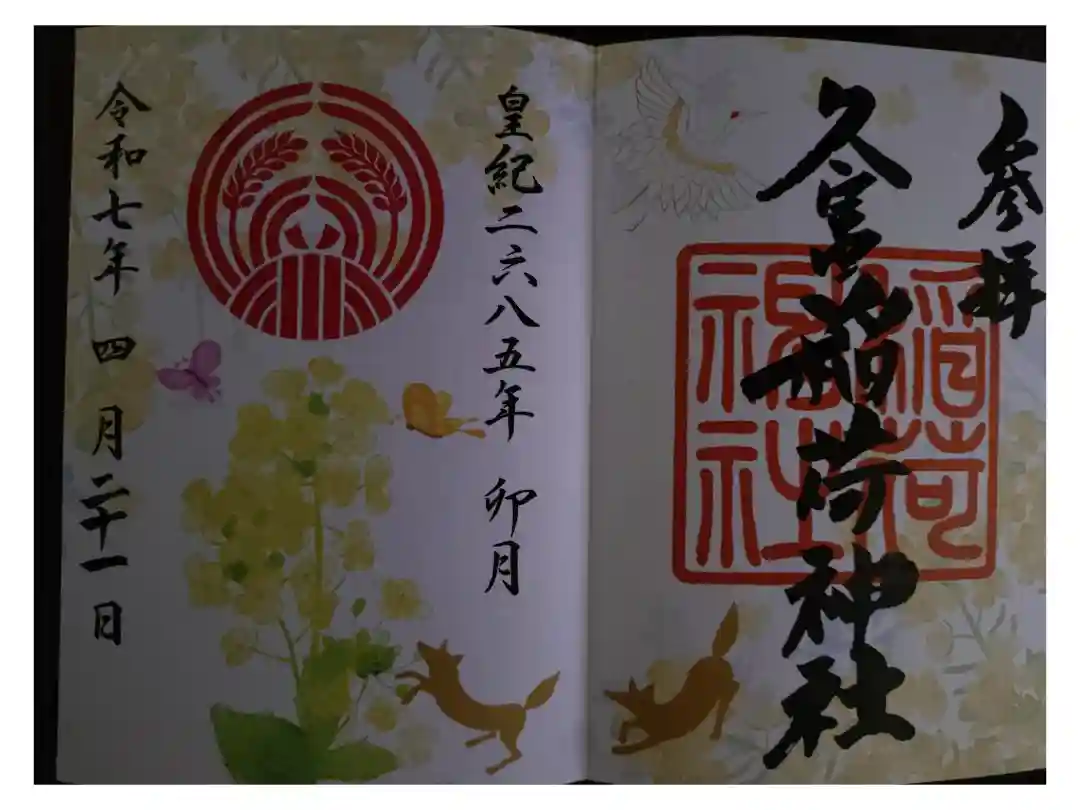 参拝
久富稲荷神社
稲荷
神社
皇紀二六八五年 卯月
令和七年 四月二十一日